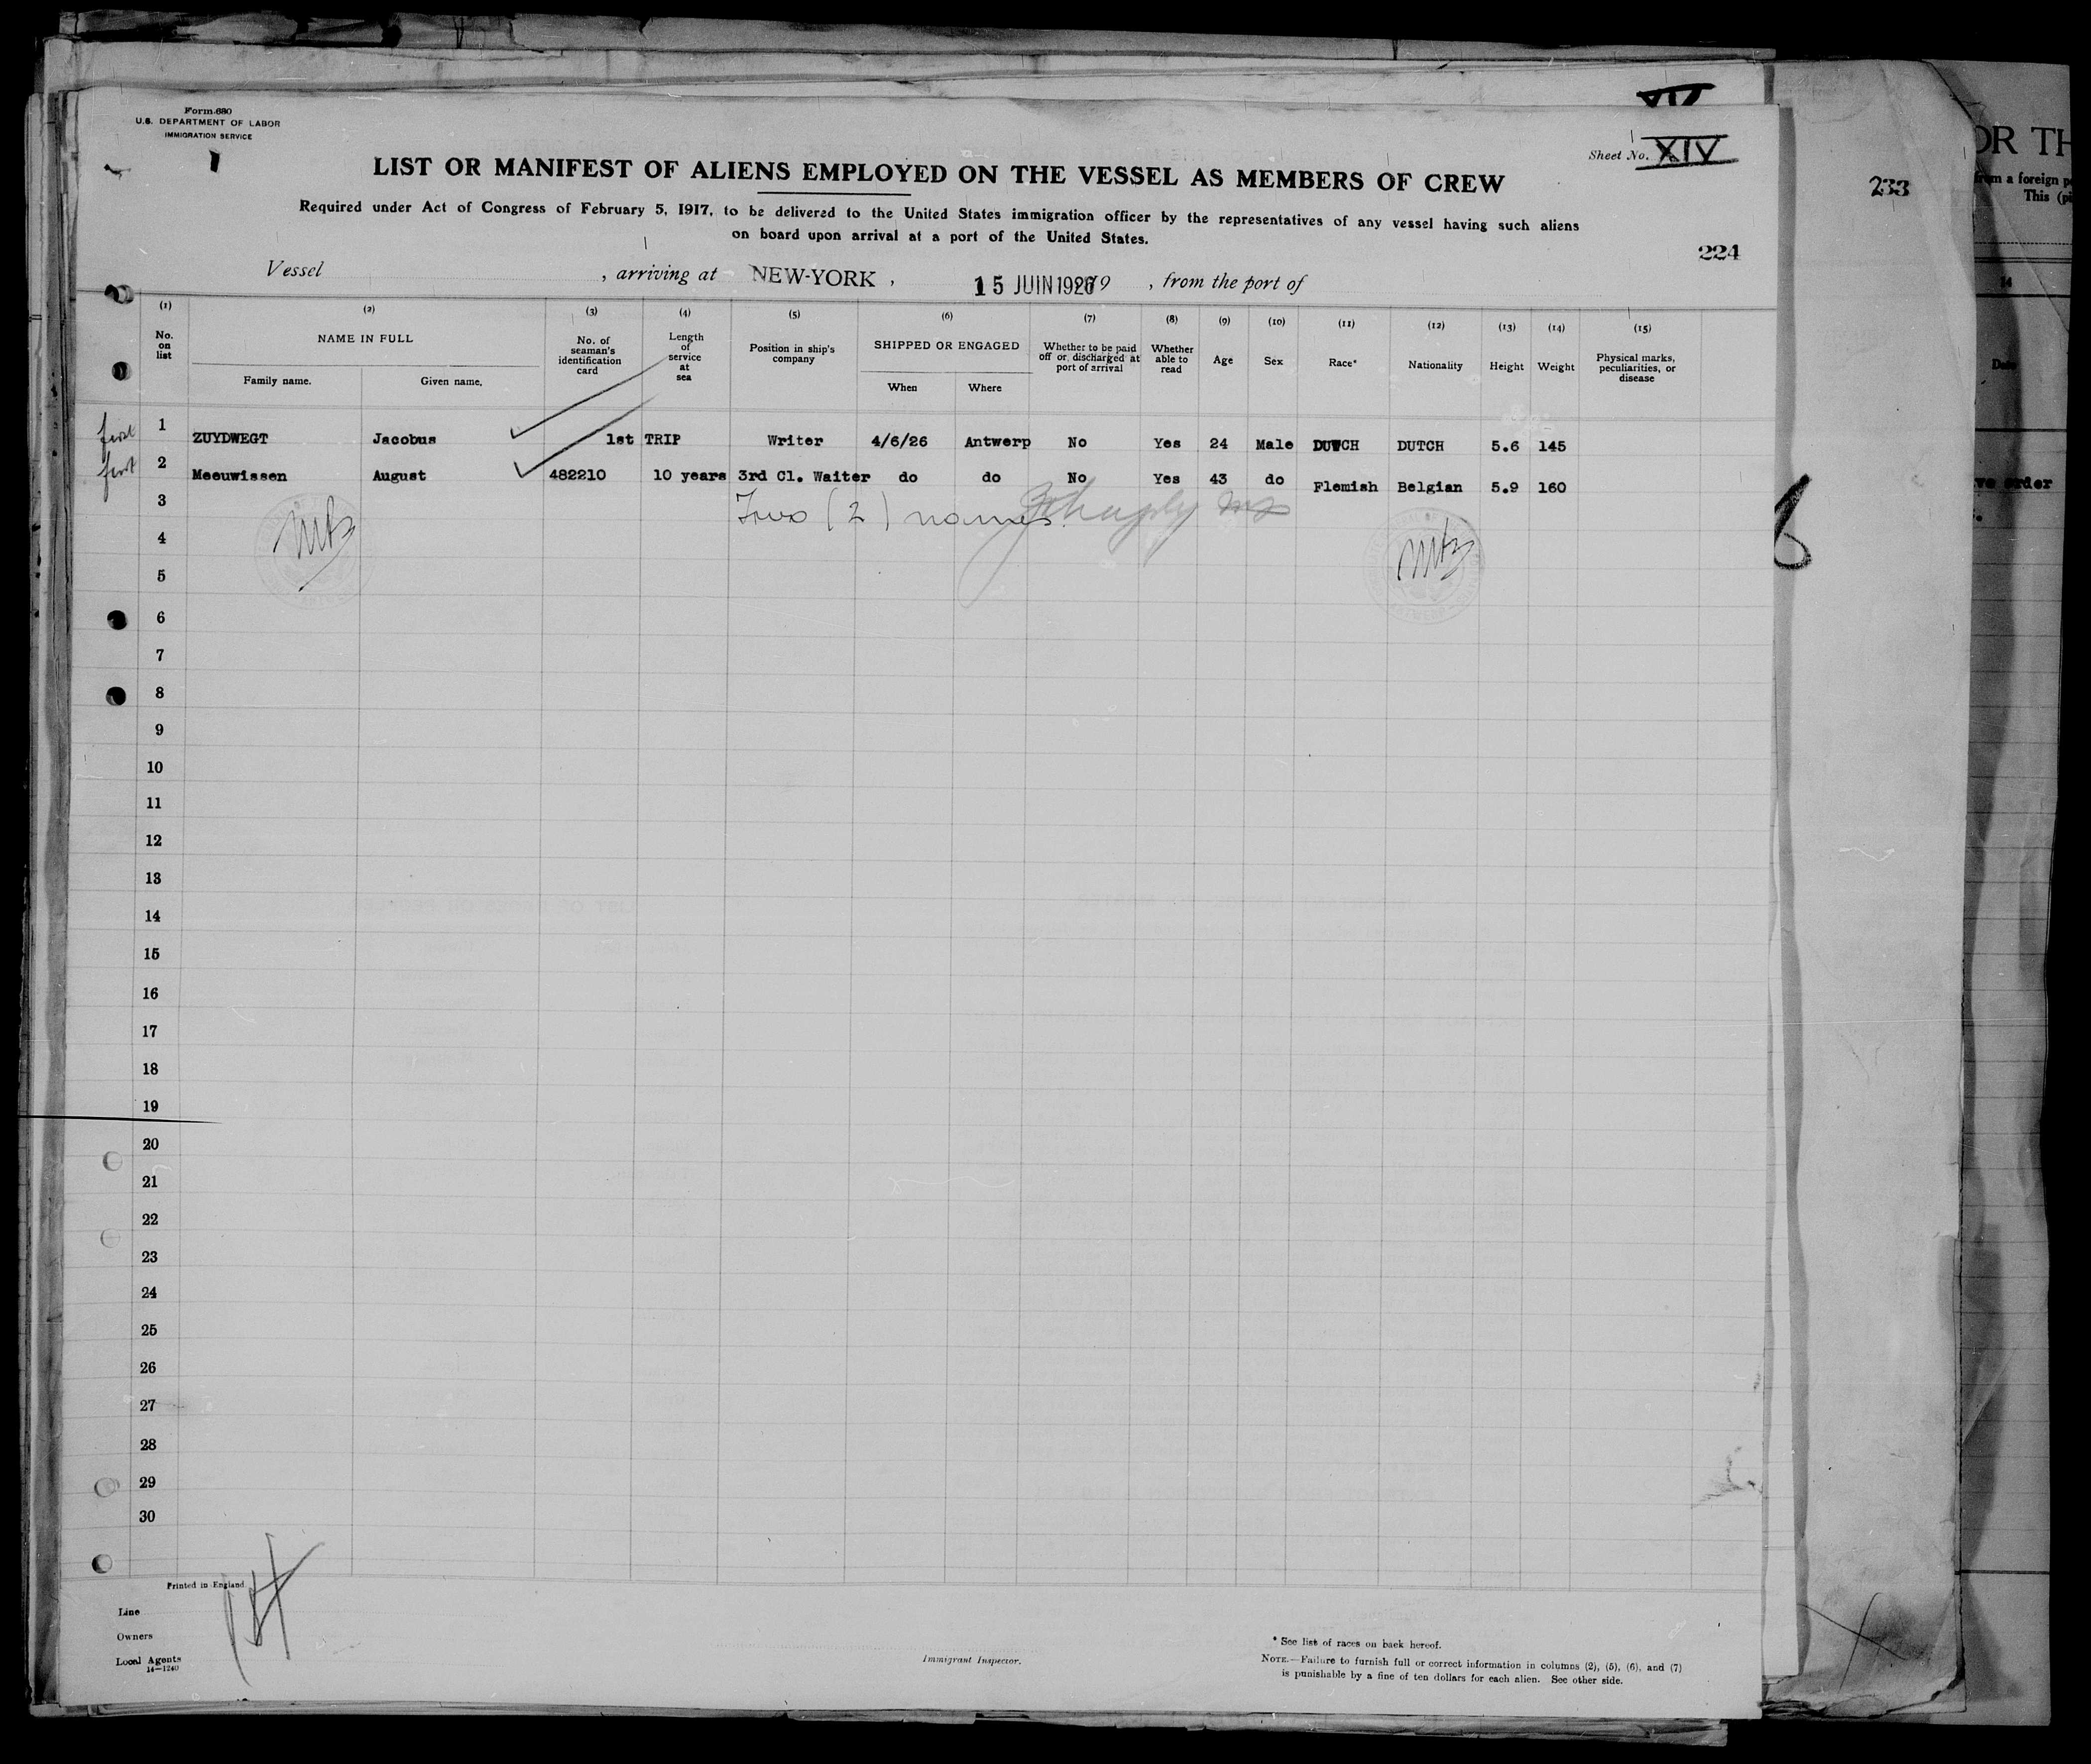 Form 680
U.S. DEPARTMENT OF LABOR
IMMIGRATION SERVICE
Sheet No. XIV
LIST OR MANIFEST OF ALIENS EMPLOYED ON THE VESSEL AS MEMBERS OF CREW
Required under Act of Congress of February 5, 1917, to be delivered to the United States immigration officer by the representatives of any vessel having such aliens
on board upon arrival at a port of the United States.
224
233
Vessel , arriving at NEW-YORK , 15 JUIN 1926 , from the port of
(1) (2) (3) (4) (5) (6) (7) (8) (9) (10) (11) (12) (13) (14) (15)
No. on list NAME IN FULL Family name. Given name. No. of seaman's identification card Length of service at sea Position in ship's company SHIPPED OR ENGAGED When Where Whether to be paid off or discharged at port of arrival Whether able to read Age Sex Race* Nationality Height Weight Physical marks, peculiarities, or disease
first 1 ZUYDWEGT Jacobus 1st TRIP Writer 4/6/26 Antwerp No Yes 24 Male DUTCH DUTCH 5.6 145
first 2 Meeuwissen August 482210 10 years 3rd Cl. Waiter do do No Yes 43 do Flemish Belgian 5.9 160
3 Two (2) names.
4
5
6
7
8
9
10
11
12
13
14
15
16
17
18
19
20
21
22
23
24
25
26
27
28
29
30
Printed in England
Line
Owners
Local Agents
14-1240
Immigrant Inspector.
* See list of races on back hereof.
NOTE.—Failure to furnish full or correct information in columns (2), (5), (6), and (7)
is punishable by a fine of ten dollars for each alien. See other side.
OR TH
from a foreign
This
14
Date
order